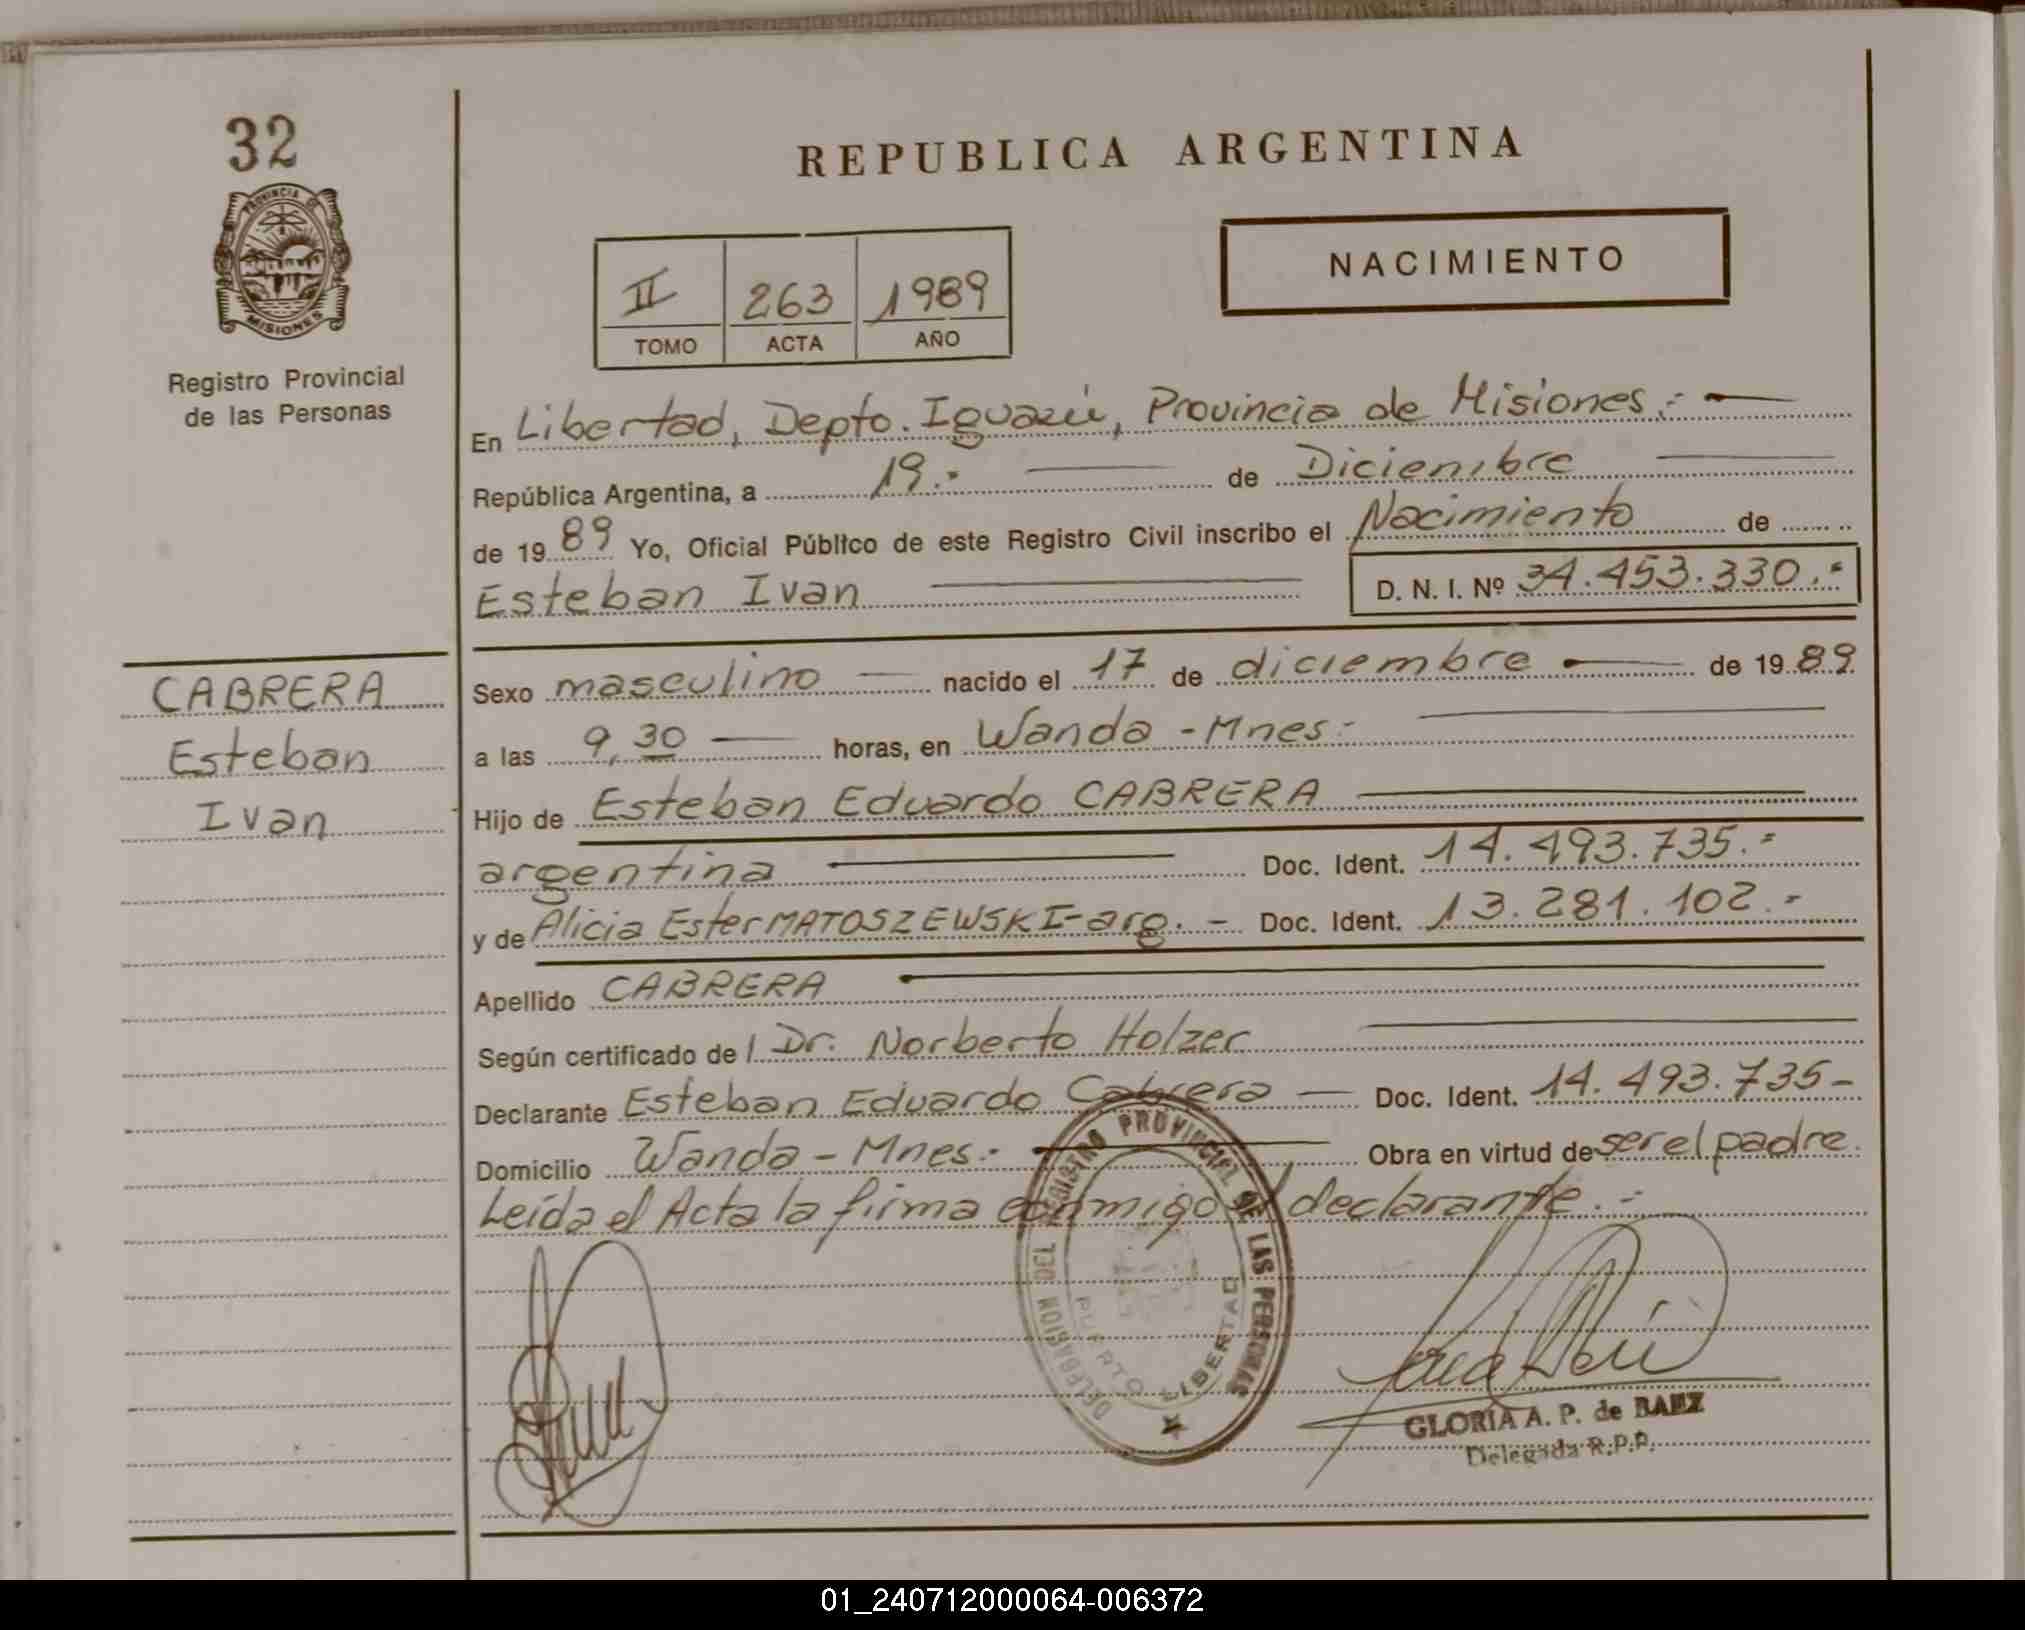 32
PROVINCIA DE
MISIONES
Registro Provincial
de las Personas
CABRERA
Esteban
Ivan
REPUBLICA ARGENTINA
NACIMIENTO
II 263 1989
TOMO ACTA AÑO
En Libertad, Depto. Iguazú, Provincia de Misiones.-
República Argentina, a 19.- de Diciembre
de 1989 Yo, Oficial Público de este Registro Civil inscribo el Nacimiento de
Esteban Ivan D. N. I. Nº 34.453.330.-
Sexo masculino nacido el 17 de diciembre de 1989
a las 9,30 horas, en Wanda - Mnes.-
Hijo de Esteban Eduardo CABRERA
argentina Doc. Ident. 14.493.735.-
y de Alicia Ester MATOSZEWSKI-arg. - Doc. Ident. 13.281.102.-
Apellido CABRERA
Según certificado del Dr. Norberto Holzer
Declarante Esteban Eduardo Cabrera Doc. Ident. 14.493.735-
Domicilio Wanda - Mnes.- Obra en virtud de ser el padre.
Leída el Acta la firma conmigo el declarante.-
DELEGACION DEL REGISTRO PROVINCIAL DE LAS PERSONAS
PUERTO LIBERTAD
GLORIA A. P. de BAEZ
Delegada R.P.P.
01_240712000064-006372